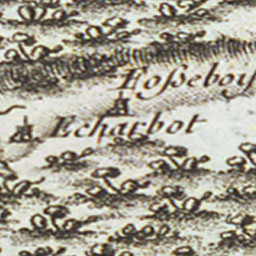 Foßeboy
Echarbot